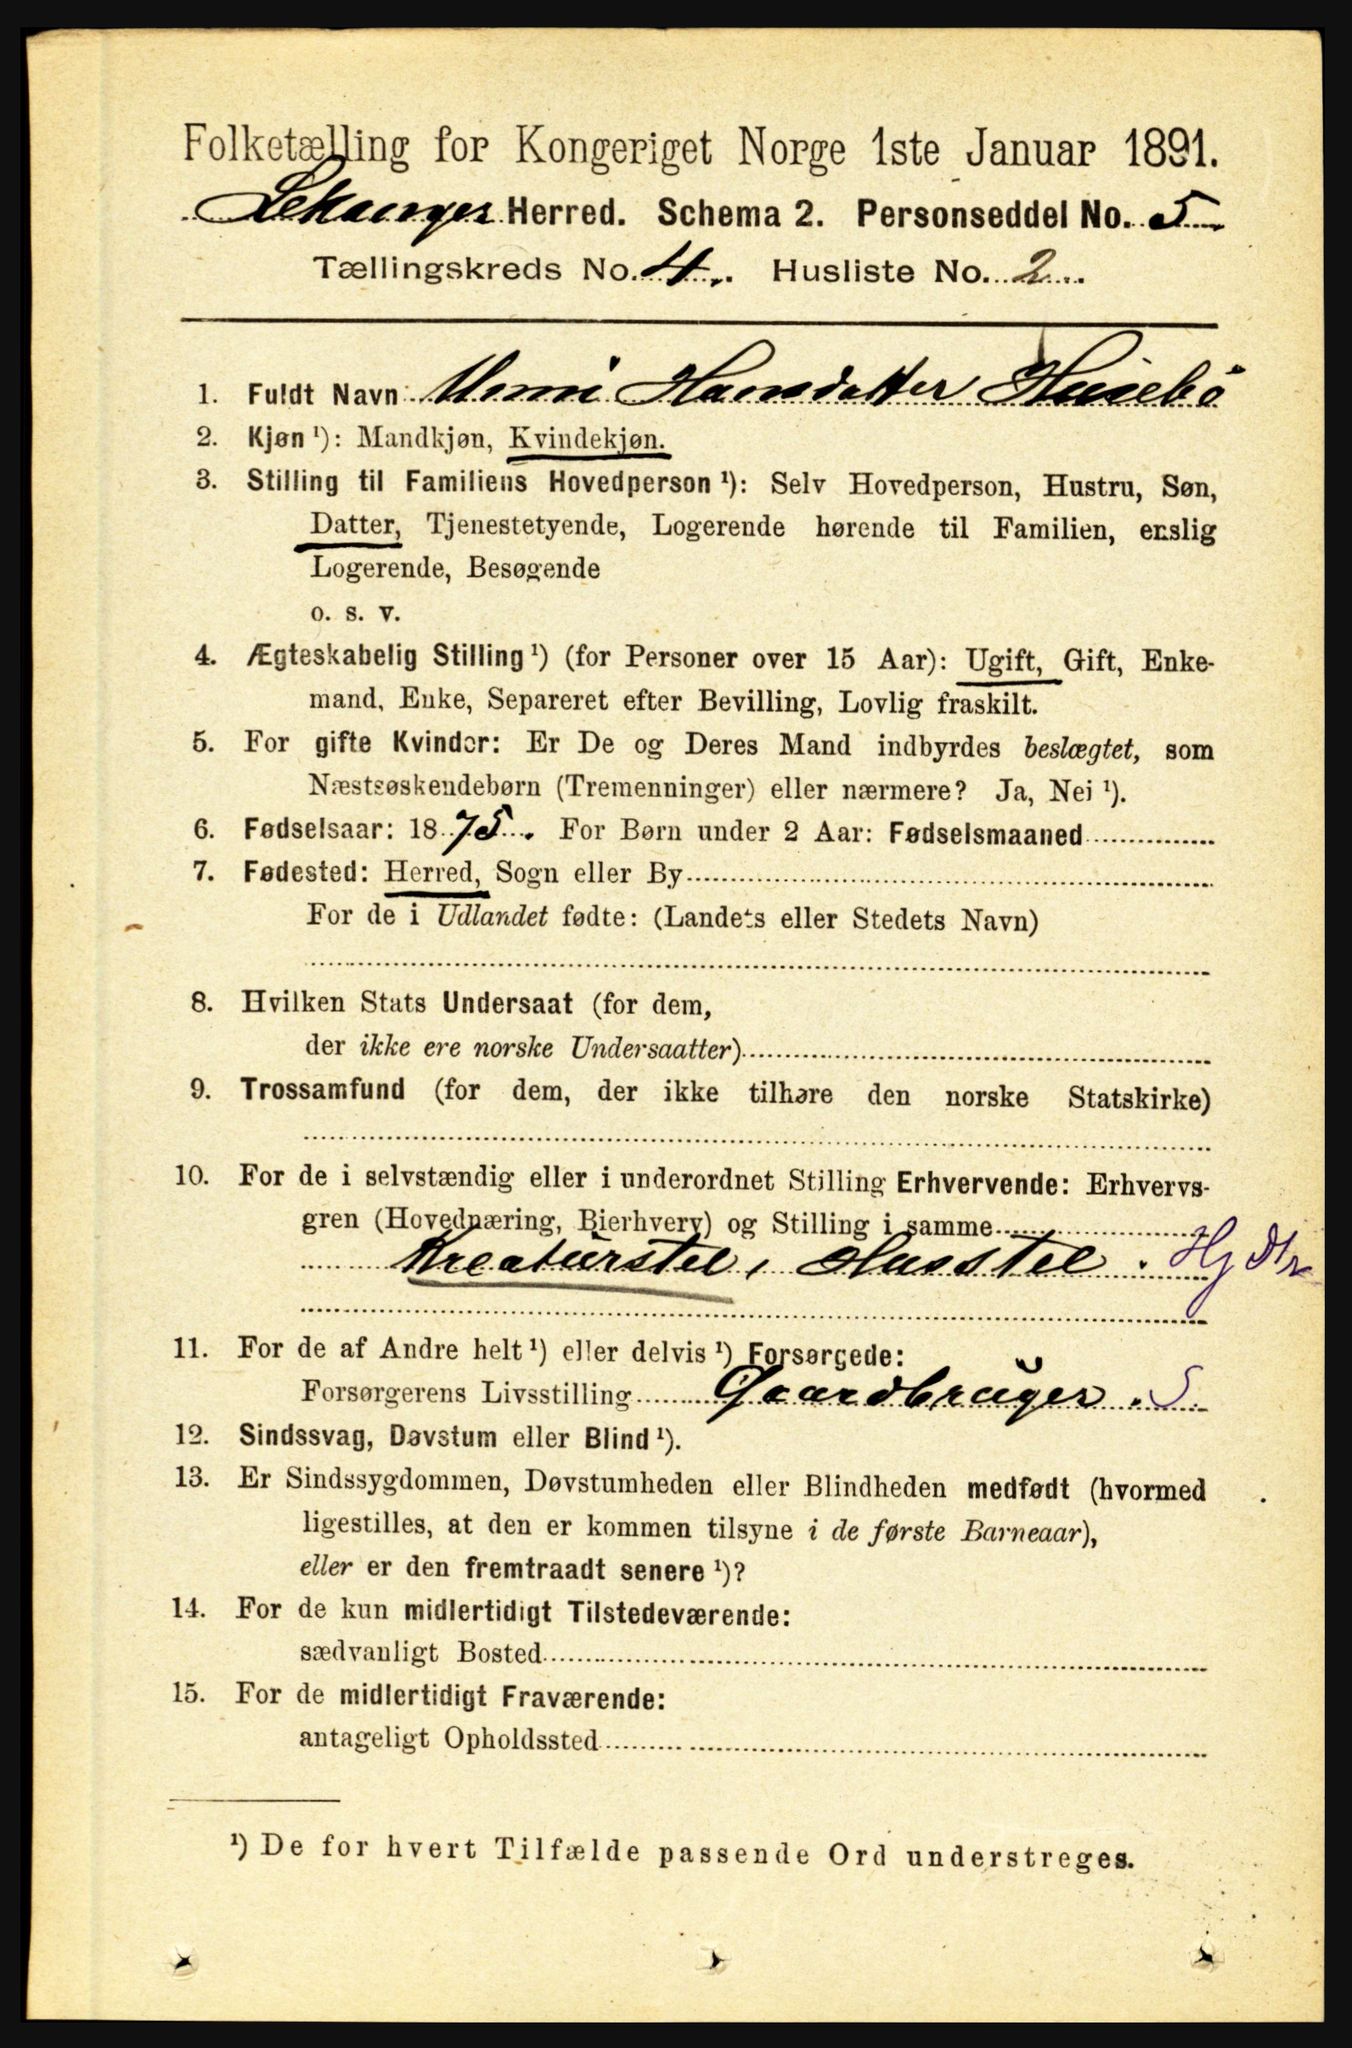 Folketælling for Kongeriget Norge 1ste Januar 1891.
Lekanger Herred. Schema 2. Personseddel No. 5
Tællingskreds No. 4. Husliste No. 2
1. Fuldt Navn Unni Hansdatter Husebö
2. Kjøn ¹): Mandkjøn, Kvindekjøn.
3. Stilling til Familiens Hovedperson ¹): Selv Hovedperson, Hustru, Søn,
Datter, Tjenestetyende, Logerende hørende til Familien, enslig
Logerende, Besøgende
o. s. v.
4. Ægteskabelig Stilling ¹) (for Personer over 15 Aar): Ugift, Gift, Enke-
mand, Enke, Separeret efter Bevilling, Lovlig fraskilt.
5. For gifte Kvinder: Er De og Deres Mand indbyrdes beslægtet, som
Næstsøskendebørn (Tremenninger) eller nærmere? Ja, Nei ¹).
6. Fødselsaar: 1875. For Børn under 2 Aar: Fødselsmaaned
7. Fødested: Herred, Sogn eller By
For de i Udlandet fødte: (Landets eller Stedets Navn)
8. Hvilken Stats Undersaat (for dem,
der ikke ere norske Undersaatter)
9. Trossamfund (for dem, der ikke tilhøre den norske Statskirke)
10. For de i selvstændig eller i underordnet Stilling Erhvervende: Erhvervs-
gren (Hovednæring, Bierhverv) og Stilling i samme
Kreaturstel, Husstel. Hj Dtr
11. For de af Andre helt ¹) eller delvis ¹) Forsørgede:
Forsørgerens Livsstilling Gaardbruger. S.
12. Sindssvag, Døvstum eller Blind ¹).
13. Er Sindssygdommen, Døvstumheden eller Blindheden medfødt (hvormed
ligestilles, at den er kommen tilsyne i de første Barneaar),
eller er den fremtraadt senere ¹)?
14. For de kun midlertidigt Tilstedeværende:
sædvanligt Bosted
15. For de midlertidigt Fraværende:
antageligt Opholdssted
¹) De for hvert Tilfælde passende Ord understreges.